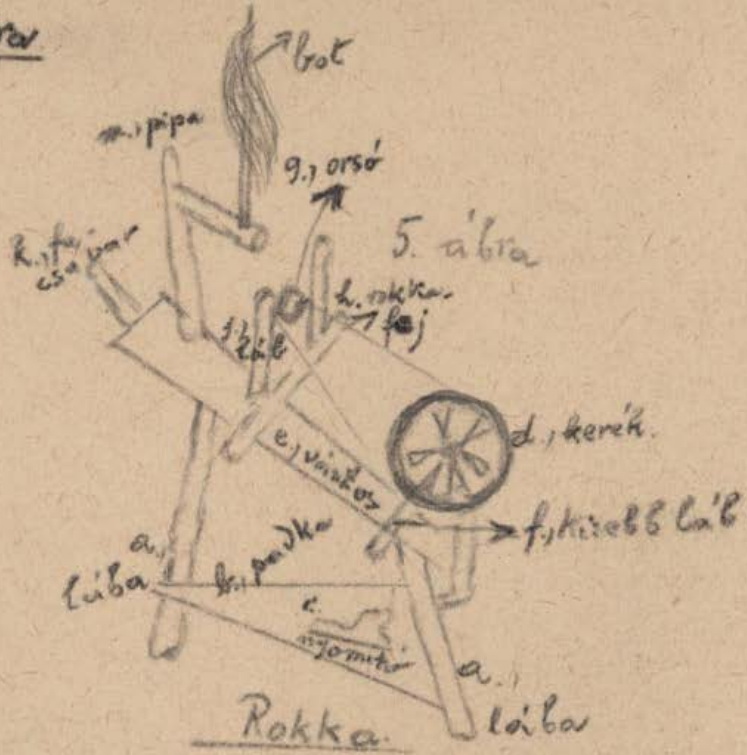 bot
m., pipa
g., orsó
5. ábra
k., fej
csavar
h. rokka-
fej
j.,
láb
d., kerék.
e., vánkos
f., kisebb láb
a.,
lába
b., padka
c.
nyomító
a.,
lába
Rokka.